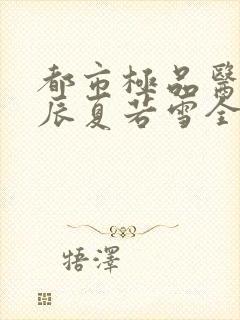 都市極品醫
辰夏若雪全
梧澤